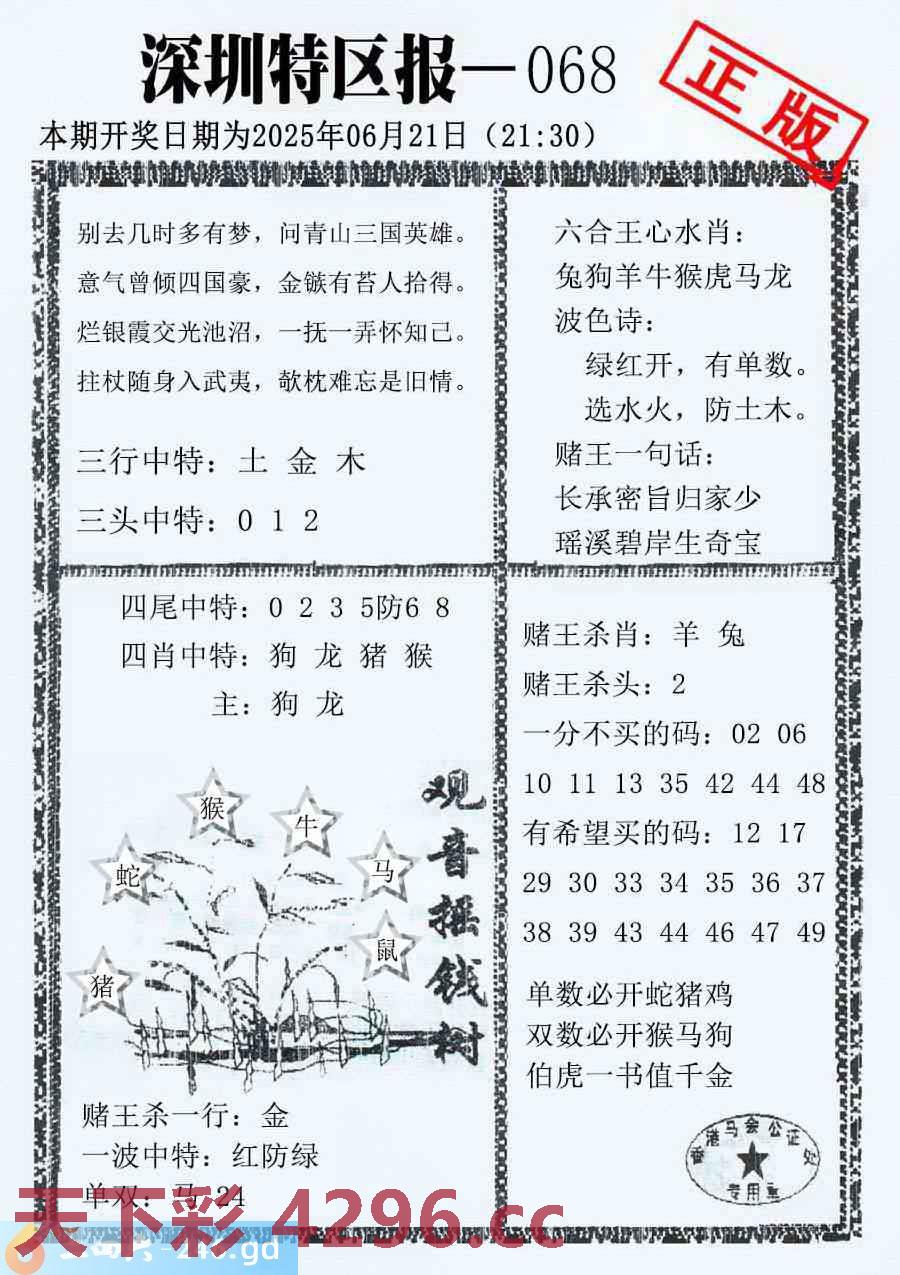 深圳特区报—068
正版
本期开奖日期为2025年06月21日（21:30）
别去几时多有梦，问青山三国英雄。
意气曾倾四国豪，金镞有苔人拾得。
烂银霞交光池沼，一抚一弄怀知己。
拄杖随身入武夷，欹枕难忘是旧情。
三行中特：土 金 木
三头中特：0 1 2
六合王心水肖：
兔狗羊牛猴虎马龙
波色诗：
绿红开，有单数。
选水火，防土木。
赌王一句话：
长承密旨归家少
瑶溪碧岸生奇宝
四尾中特：0 2 3 5防6 8
四肖中特：狗 龙 猪 猴
主：狗 龙
观音摇钱树
猴
牛
蛇
马
鼠
猪
赌王杀一行：金
一波中特：红防绿
单双：马 24
赌王杀肖：羊 兔
赌王杀头：2
一分不买的码：02 06
10 11 13 35 42 44 48
有希望买的码：12 17
29 30 33 34 35 36 37
38 39 43 44 46 47 49
单数必开蛇猪鸡
双数必开猴马狗
伯虎一书值千金
香港马会公证处
专用章
天下彩 4296.cc